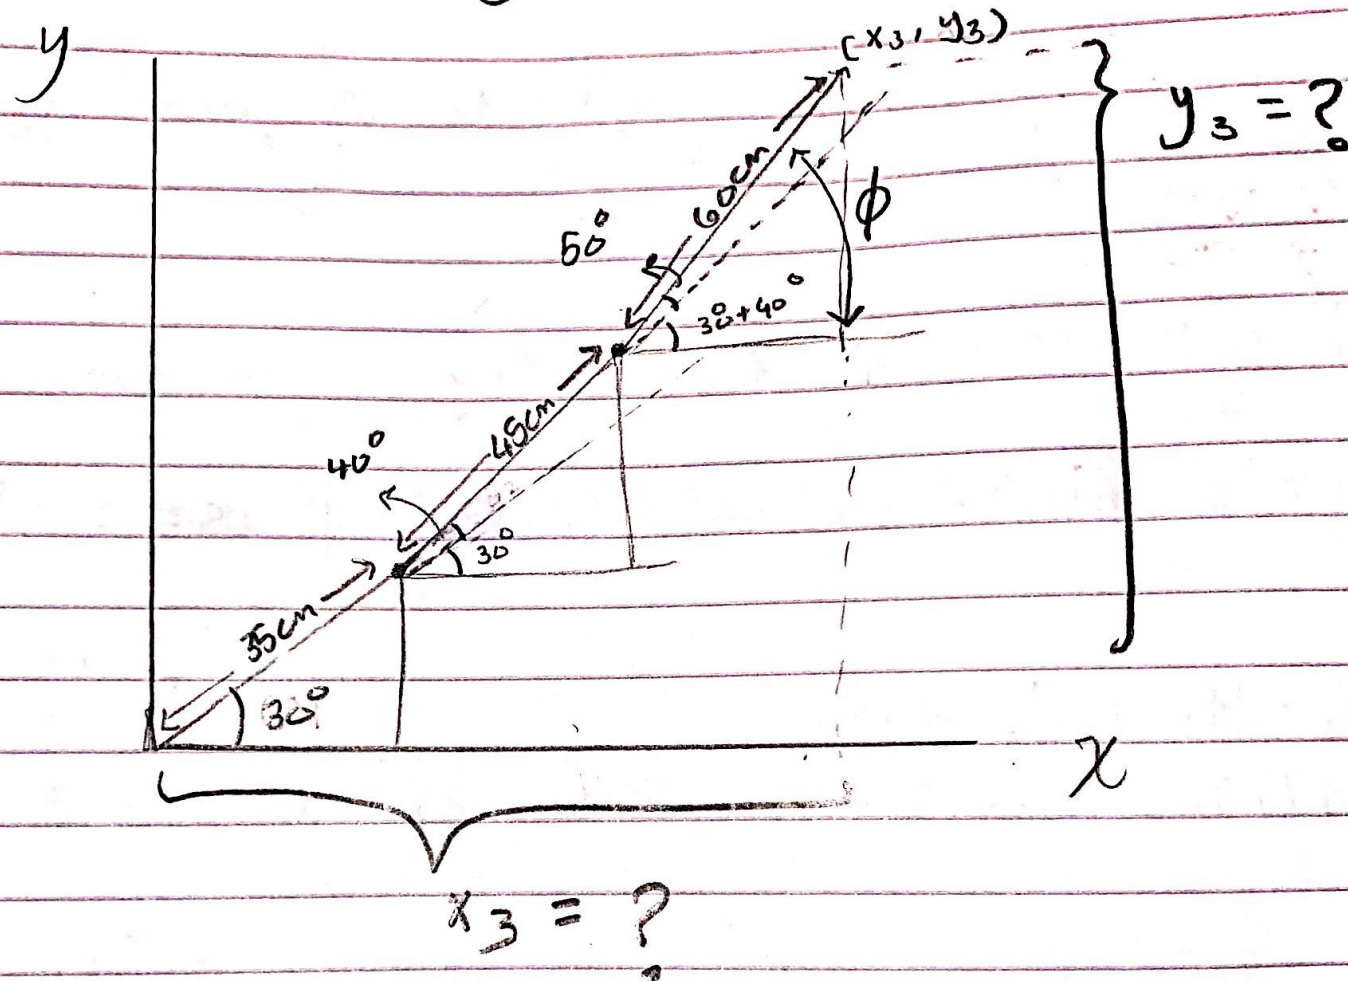 y
(x₃, y₃)
y₃ = ?
60cm
ϕ
50°
30°+40°
45cm
40°
30°
35cm
30°
x
x₃ = ?